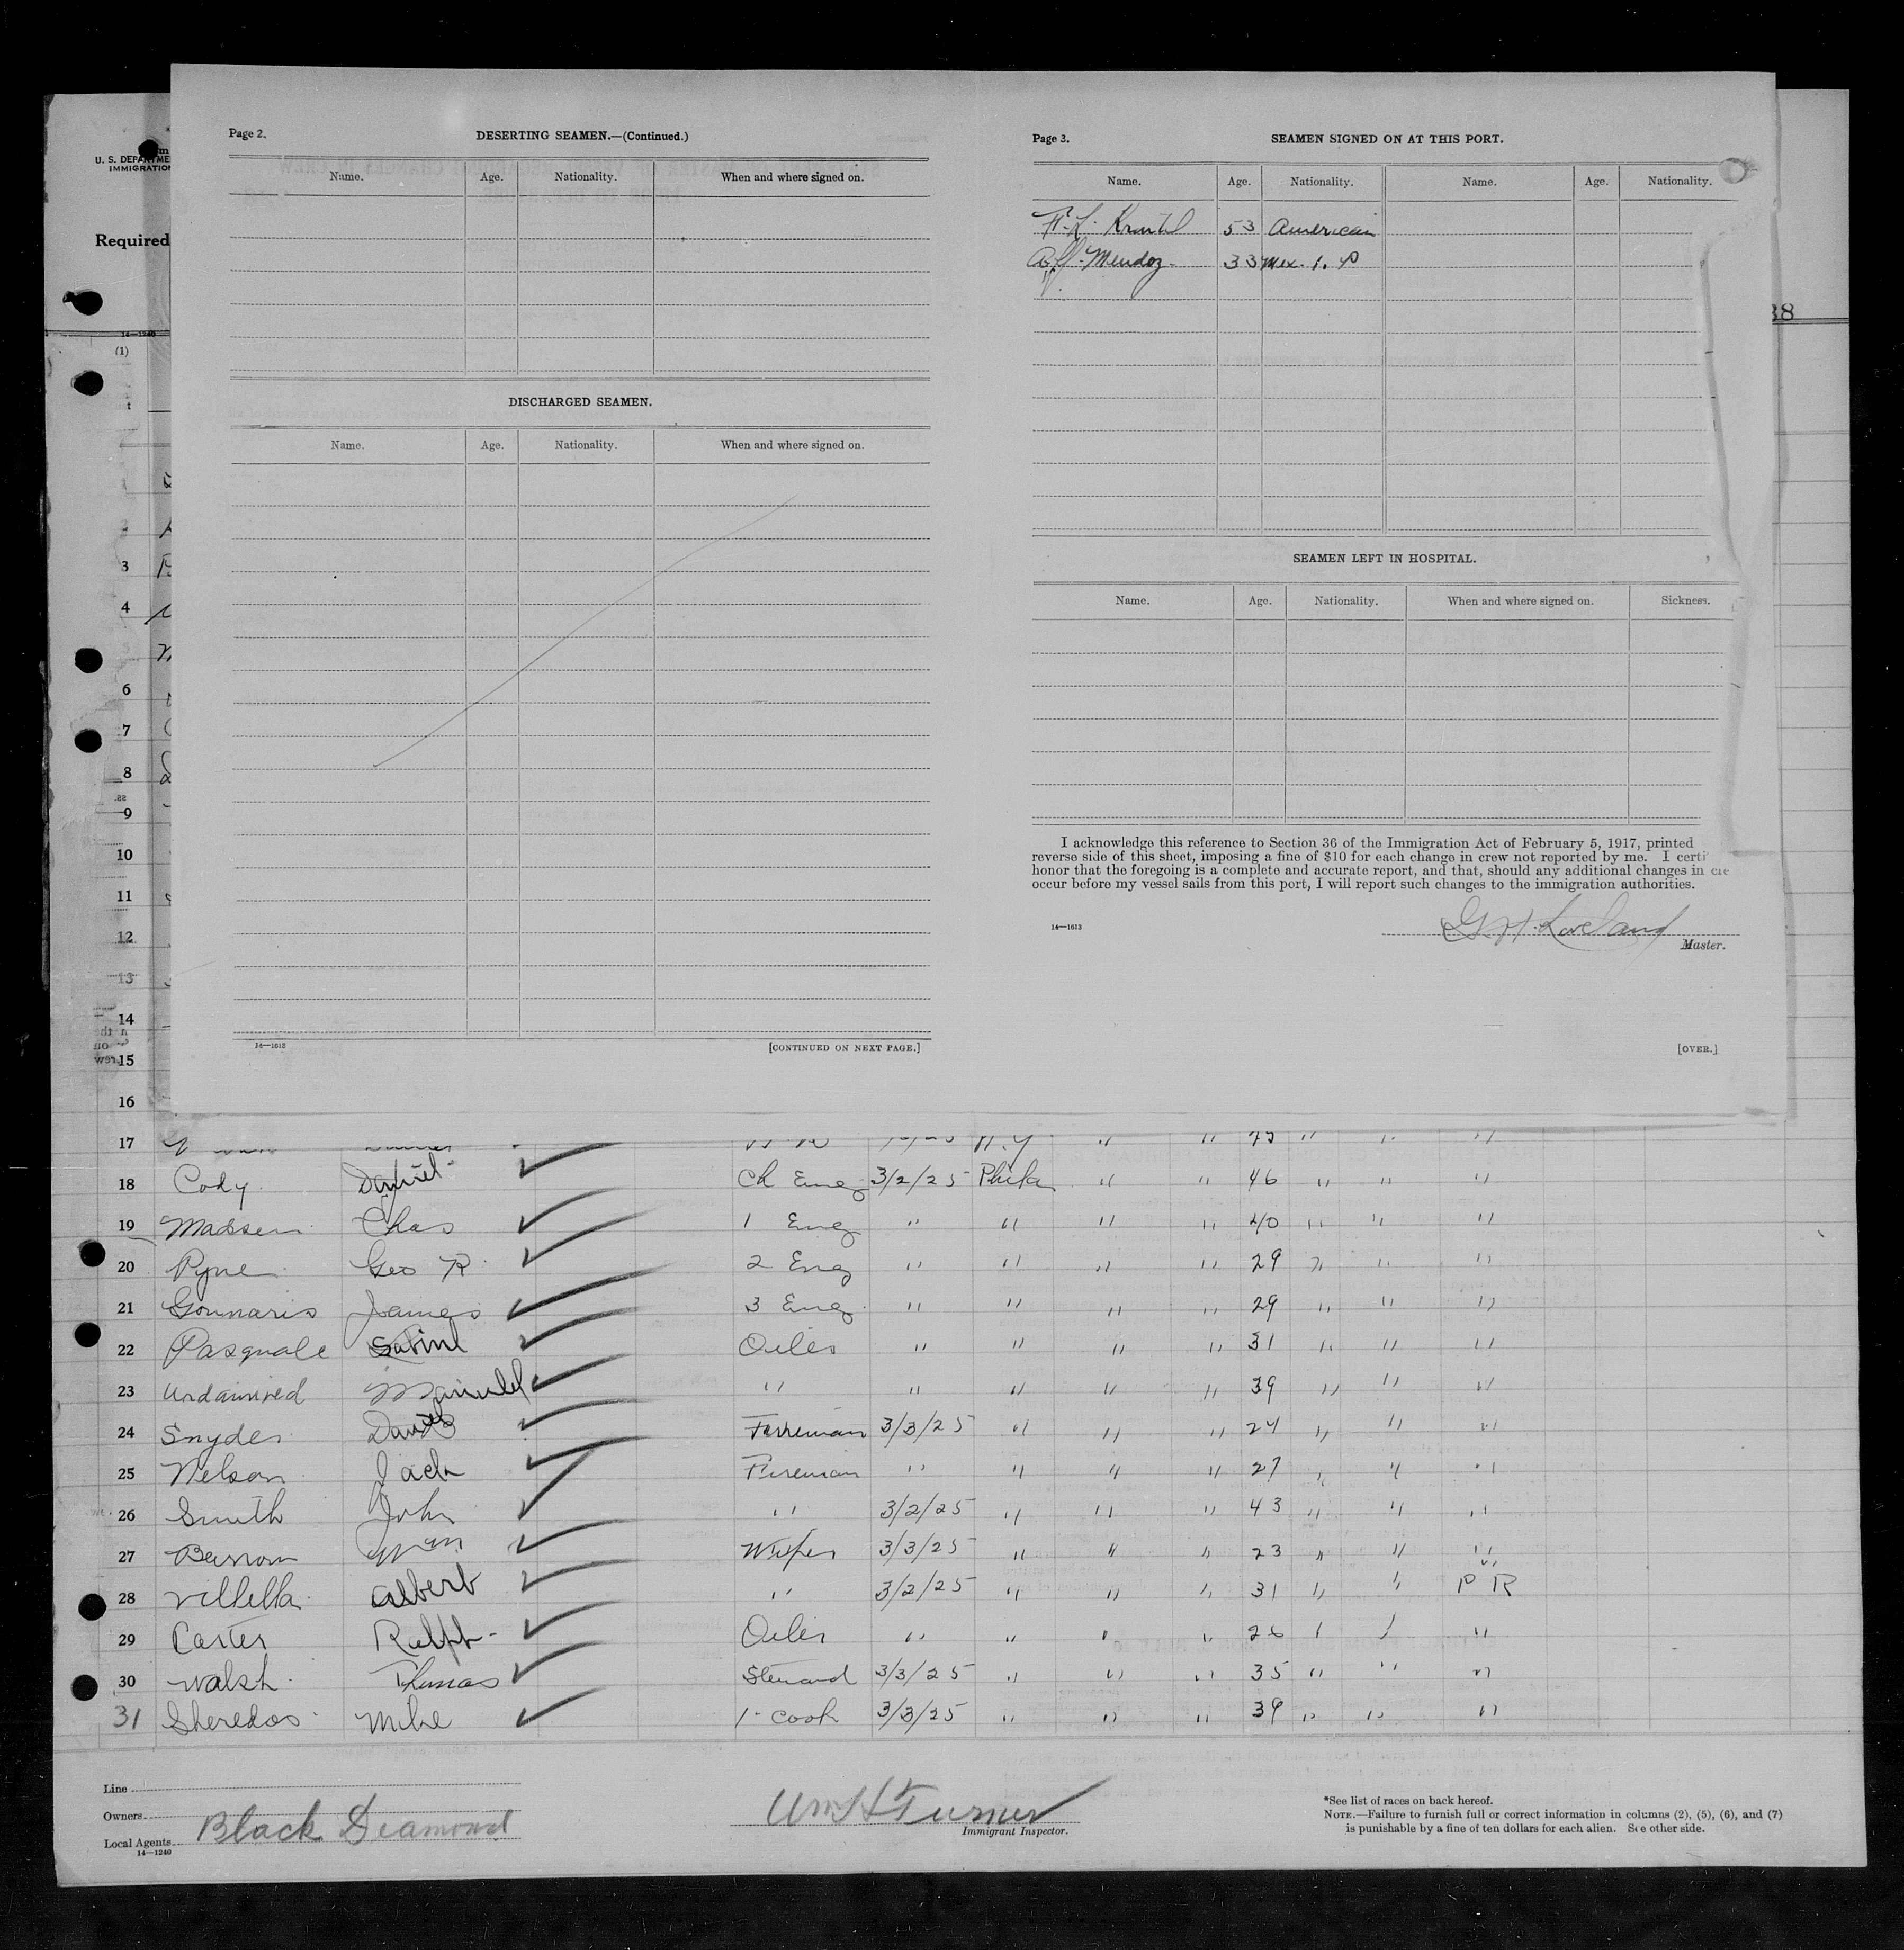 Page 2.
DESERTING SEAMEN.—(Continued.)
Name. Age. Nationality. When and where signed on.
DISCHARGED SEAMEN.
Name. Age. Nationality. When and where signed on.
14—1613
[CONTINUED ON NEXT PAGE.]
Page 3.
SEAMEN SIGNED ON AT THIS PORT.
Name. Age. Nationality. Name. Age. Nationality.
53 American
Mendoz 33 Mex.
SEAMEN LEFT IN HOSPITAL.
Name. Age. Nationality. When and where signed on. Sickness.
I acknowledge this reference to Section 36 of the Immigration Act of February 5, 1917, printed
reverse side of this sheet, imposing a fine of $10 for each change in crew not reported by me. I certi
honor that the foregoing is a complete and accurate report, and that, should any additional changes in cre
occur before my vessel sails from this port, I will report such changes to the immigration authorities.
14—1613
G. H. Loveland
Master.
[OVER.]
U. S. DEPARTME
IMMIGRATION
Required
14—1240
(1)
38
3
4
5
6
7
8
9
10
11
12
13
14
15
16
17 " " " " "
18 Cody Daniel Ch Eng 3/2/25 Phila " " 46 " " "
19 Madsen Chas 1 Eng " " " " 40 " " "
20 Pyne Geo R 2 Eng " " " " 29 " " "
21 Gounaris James 3 Eng " " " " 29 " " "
22 Pasquale Oiler " " " " 31 " " "
23 Manuel " " " " " 39 " " "
24 Snyder David 3/3/25 " " " 24 " " "
25 Nelson Jack Fireman " " " " 27 " " "
26 Smith John " 3/2/25 " " " 43 " " "
27 Wm Wiper 3/3/25 " " " 23 " " "
28 Villella Albert " 3/2/25 " " " 31 " " P R
29 Carter Ralph Oiler " " " " 26 " " "
30 Walsh Thomas Steward 3/3/25 " " " 35 " " "
31 Sheredos Mike 1 Cook 3/3/25 " " " 39 " " "
Line
Owners
Local Agents
Black Diamond
14—1240
Wm H Turner
Immigrant Inspector.
*See list of races on back hereof.
NOTE.—Failure to furnish full or correct information in columns (2), (5), (6), and (7)
is punishable by a fine of ten dollars for each alien. See other side.